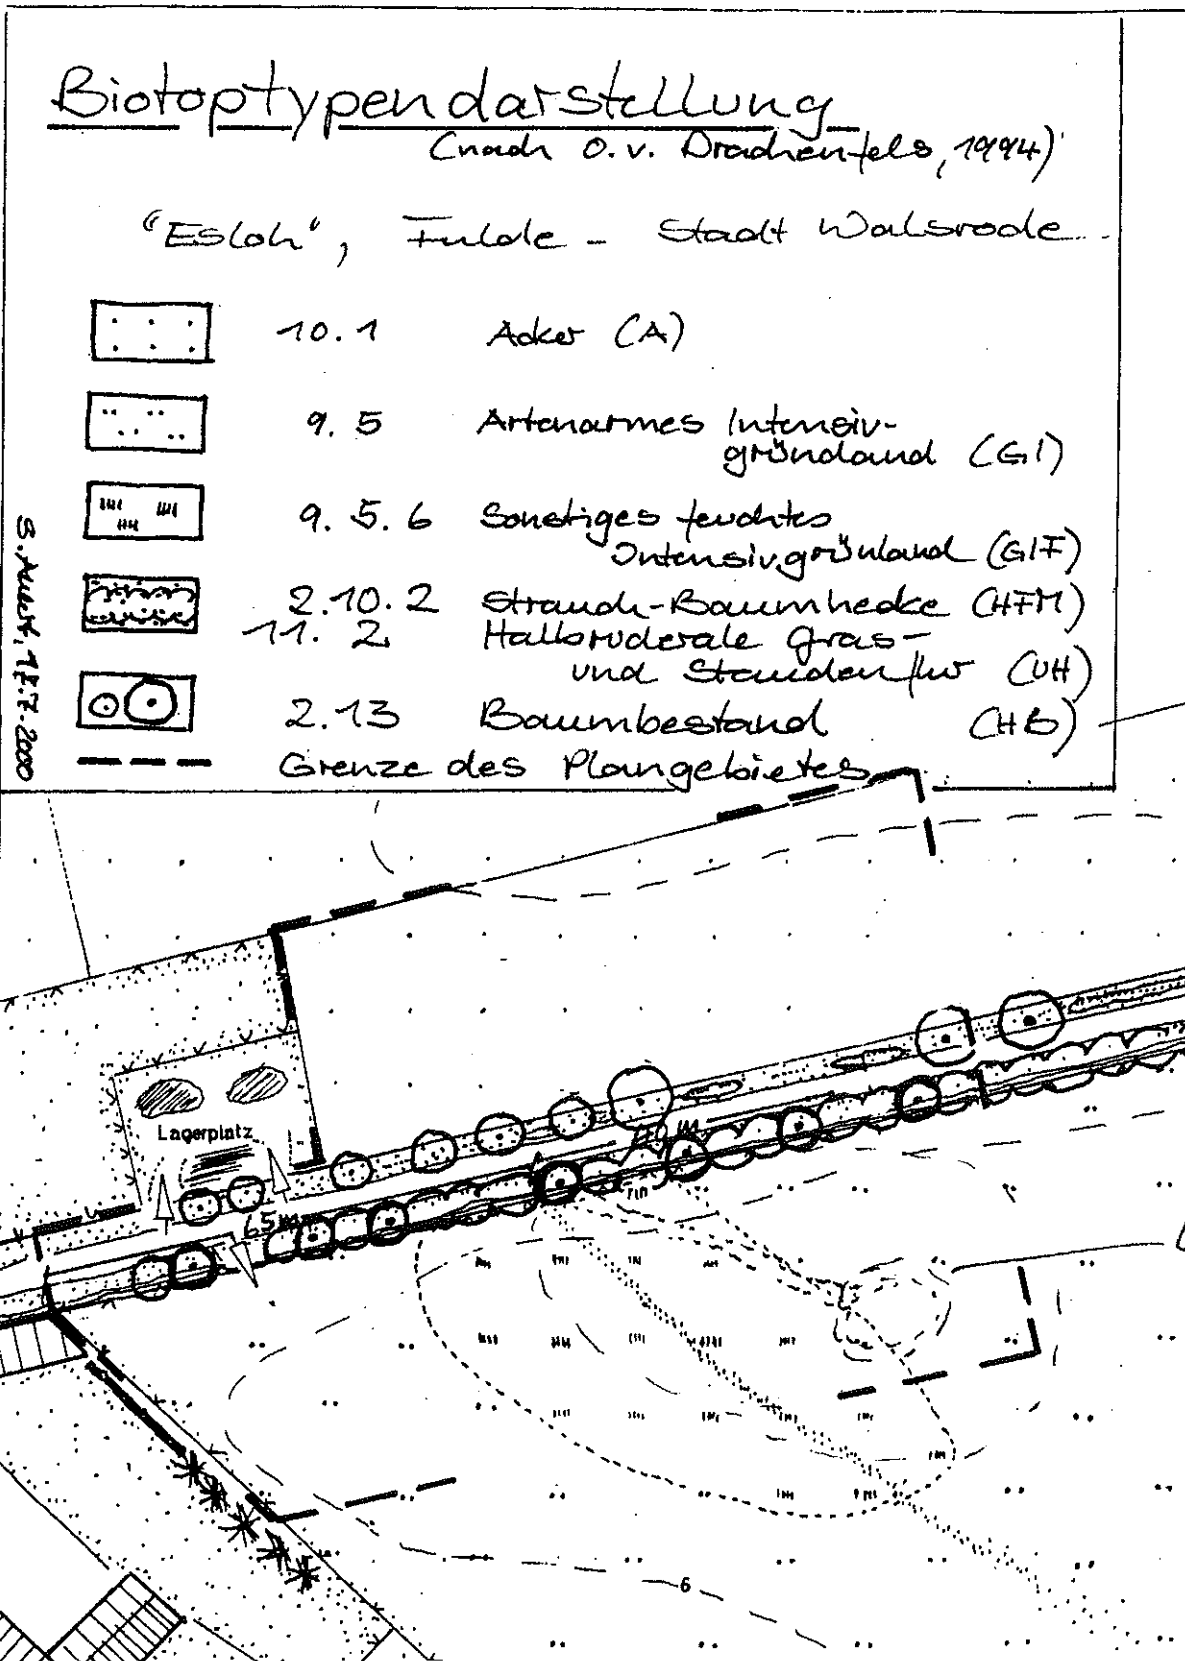 Biotoptypendarstellung
(nach O.v. Drachenfels, 1994)
"Esloh", Fulde - Stadt Walsrode
10.1 Acker (A)
9.5 Artenarmes Intensiv-
gründland (GI)
9.5.6 Sonstiges feuchtes
Intensivgrünland (GIF)
2.10.2 Strauch-Baumhecke (HFM)
11.2 Halbruderale Gras-
und Staudenflur (UH)
2.13 Baumbestand (HB)
Grenze des Plangebietes
Lagerplatz
65m
6